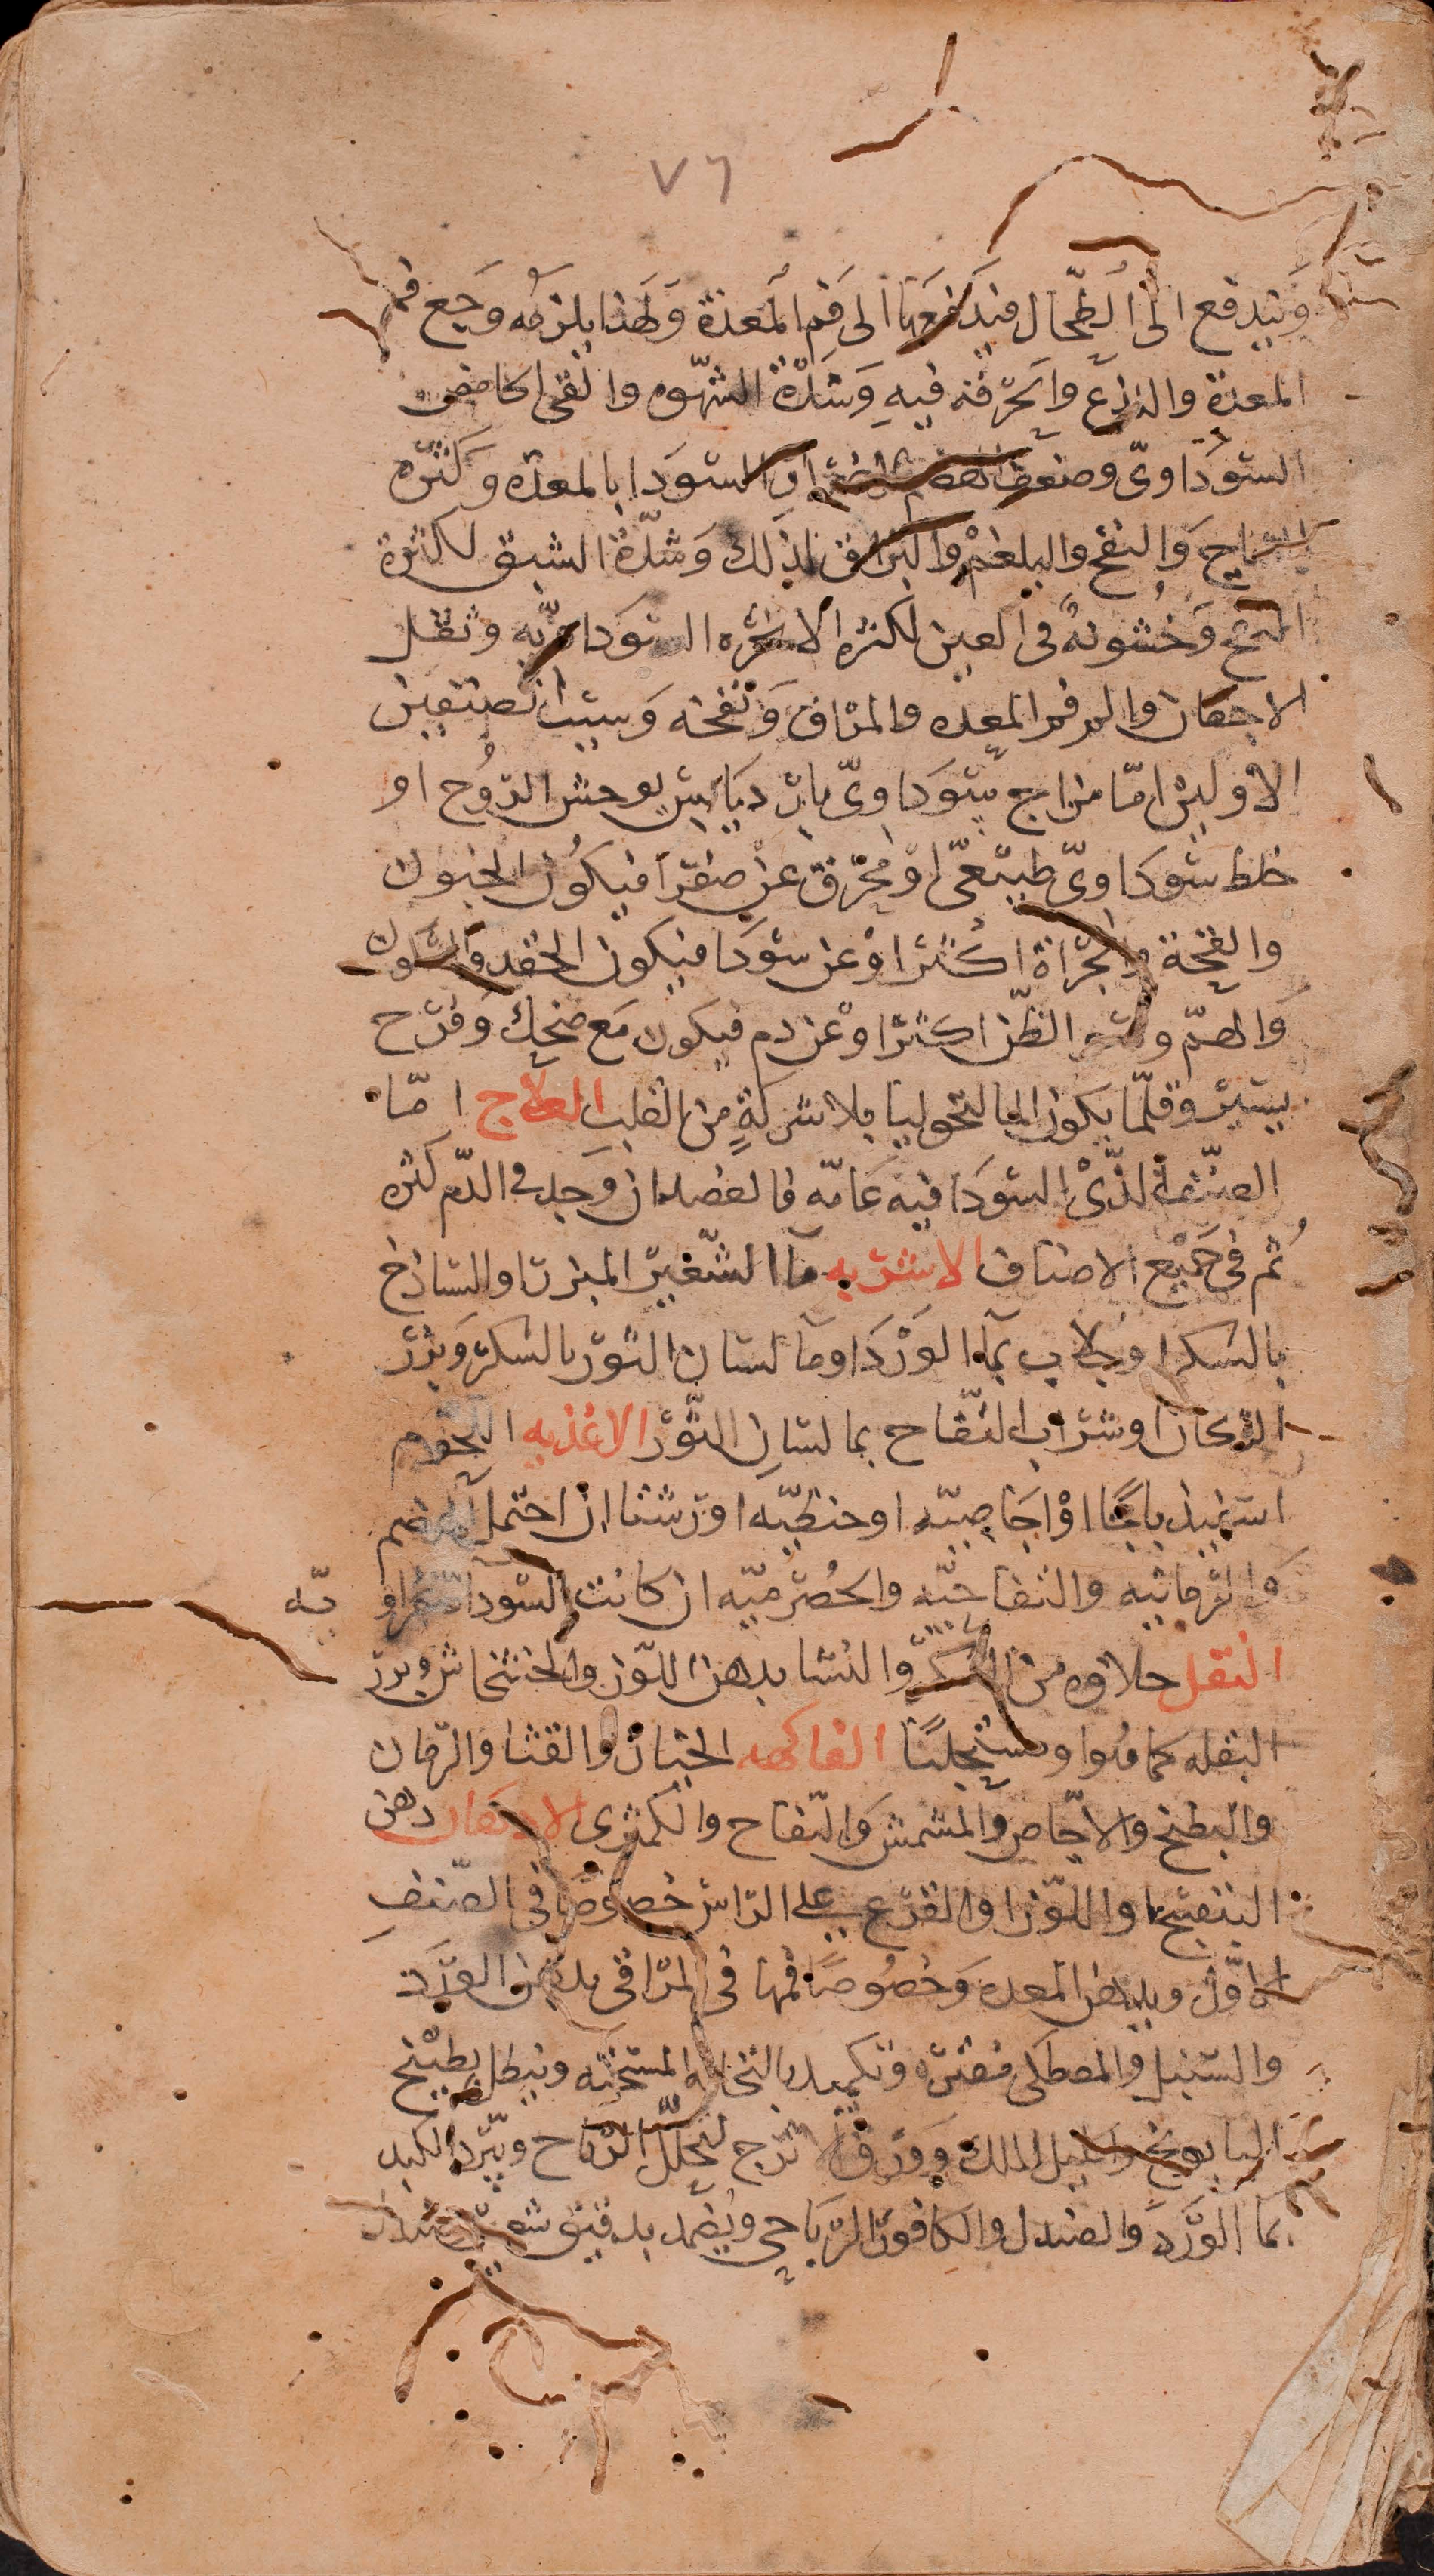 ٧٦
وَيندفع الى الطّحال فيدفعها الى فم المعدة وَلهذا يلزمه وَجع فم
المعدة واللذع والحرقه فيه وَشدّة الشهوه والقى الحامض
السّوداوىّ وضعف الهضم لاضرار السّودا بالمعده وَكثره
الرياح وَالنفخ والبلغم والبزاق لذلك وَشدّة الشبق لكثرة
النفخ وَخشونةً فى العين لكثره الابخره السّوداويّه وثقل
الاجفان والم فم المعده والمراق وَنفخه وَسبب الصنفين
الاوّلين امّا مزاج سَوداوىّ بارد يابس يوحش الرّوح او
خلط سَوداوىّ طبيعىّ اوْ محرق عن صفرا فيكون الجنون
والقحة والجراة اكثر اوْ عن سَودا فيكون الحقد والسكون
وَالهمّ وسو الظّن اكثر اوْ عن دم فيكون مَع ضحك وَفرح
يسير وقلّما يكون المالنخوليا بلا شركةٍ من القلب العلاج امّا
الصّنف الذّى السّودا فيه عَامّه فالفصد ان وَجد فى الدّم كثره
ثُم فى جميع الاصناف الاشربه مآ الشّعير المبزر او السّاذج
بالسّكر اوجُلاب بمآ الوَرْد اومآ لسان الثّور بالسّكر وَبزر
الرّيحان او شراب التّفاح بما لسان الثّور الاغذيه اللّحوم
اسفيدباجًا اوْ اجَاصيّه او حنطيّه او رشتا ان احتمل الهضم
والرّمانيه والتفاحيّه والحصرميّه ان كانت السّودآ صفراو يّه
النقل حلاوه من السّكر وّالنشا بدهن اللّوز والخشخاش وبزر
البقله كما هُوا ومستحلبًا الفاكهه الخيار والقثا والرّمان
والبطيخ والاجّاص والمشمش وَالتّفاح والكمثرى الادهان دهن
البنفسج او اللّوز او القرع على الرّاس خصوصًا فى الصّنفِ
الاوّل وبدهن المعده وَخصُوصًا فمها فى المرّاقى بدهن الوَرَد
والسّنبل والمصطكى مفتره وتكميد بالنخاله المسخّنه وينطل بطبيخ
البابونج واكليل الملك وَوَرق الاترج لتحلّل الرّياح ويبّرد الكبد
بمآ الوَرْد وَالصندل والكافور الرّبَاحى ويُضمد بدقيق